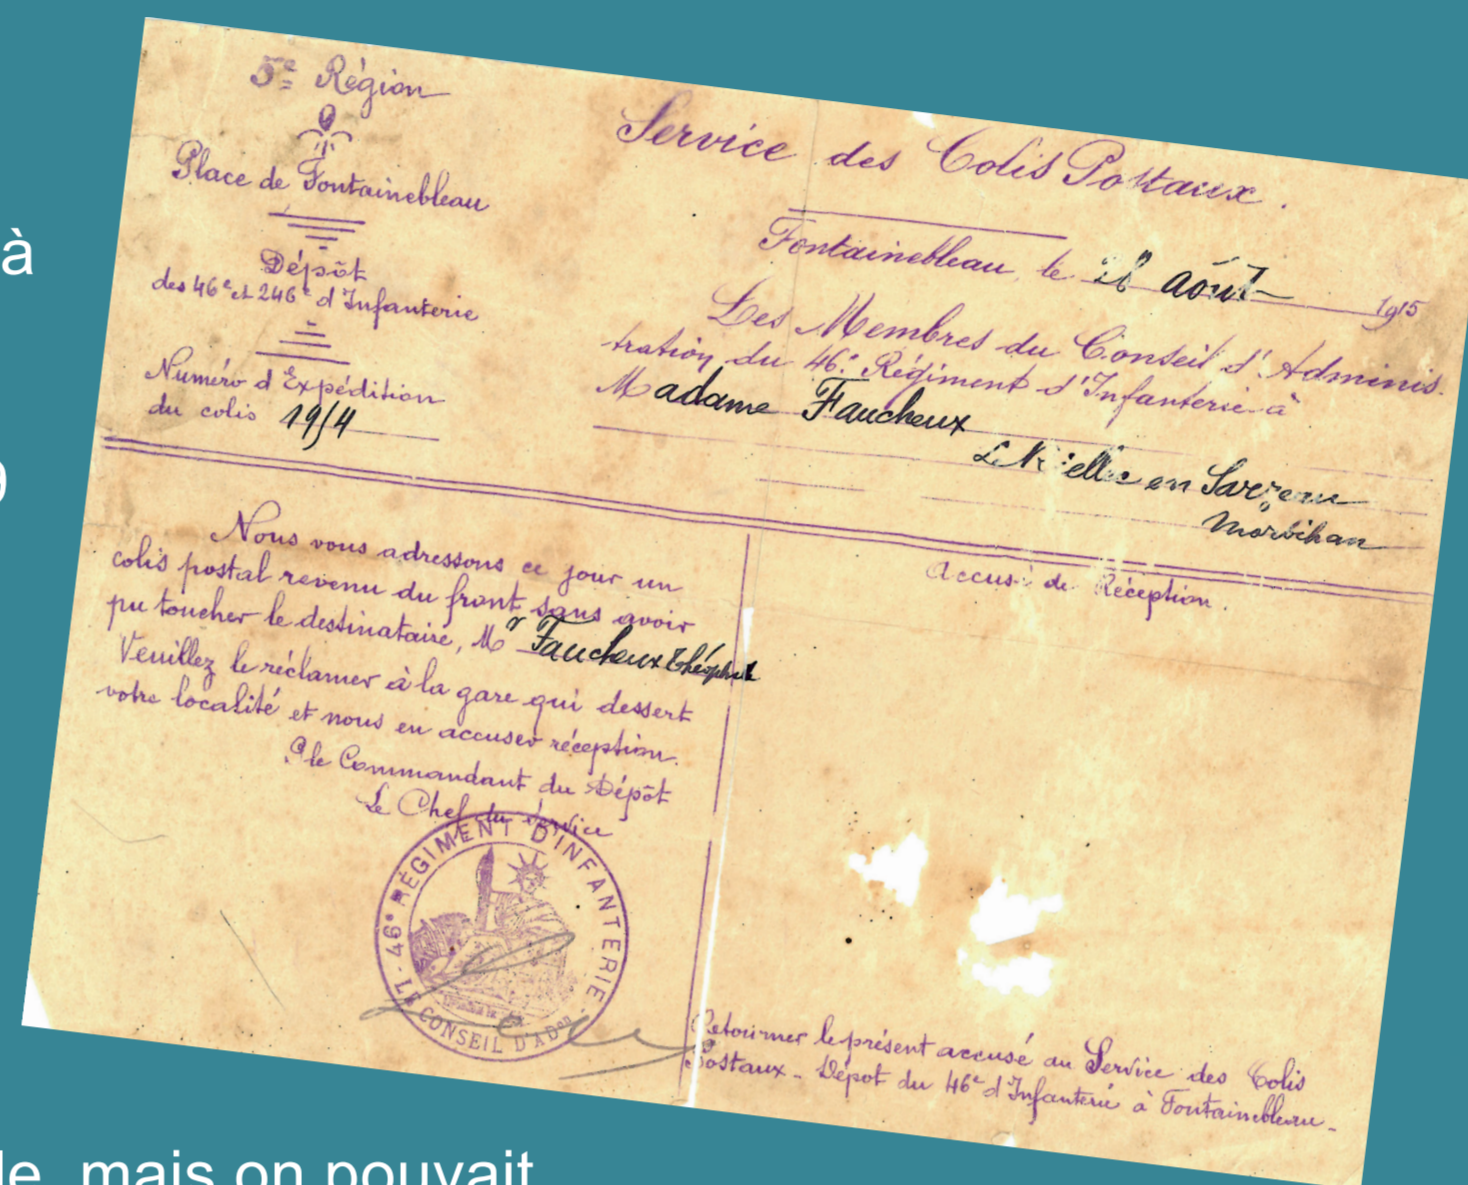 à
9
5e Région
Place de Fontainebleau
Dépôt
des 46e et 246e d'Infanterie
Numéro d'Expédition
du colis 19/4
Service des Colis Postaux.
Fontainebleau, le 28 août 1915
Les Membres du Conseil d'Adminis-
tration du 46e Régiment d'Infanterie à
Madame Faucheux
en Sarzeau
Morbihan
Nous vous adressons ce jour un
colis postal revenu du front sans avoir
pu toucher le destinataire, Mr Faucheux Théophile
Veuillez le réclamer à la gare qui dessert
votre localité et nous en accuser réception.
P. le Commandant du Dépôt
Le Chef du Service
46e RÉGIMENT D'INFANTERIE
LE CONSEIL D'ADon
Accusé de Réception.
Retourner le présent accusé au Service des Colis
Postaux - Dépot du 46e d'Infanterie à Fontainebleau -
le, mais on pouvait